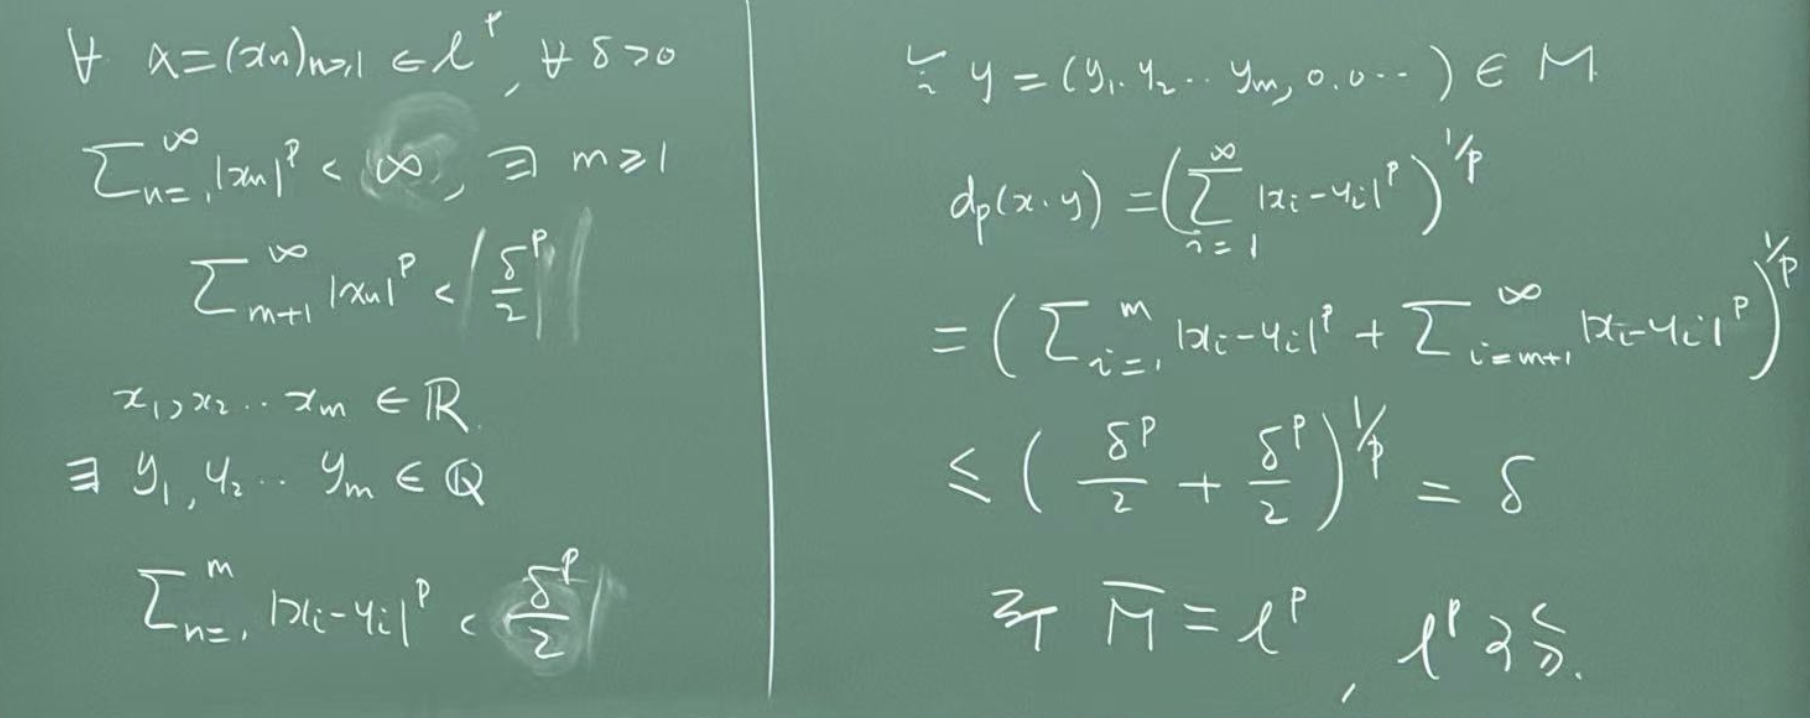 ∀ x=(xn)n≥1 ∈ ℓ^p, ∀ δ>0
∑_{n=1}^∞ |xn|^p < ∞, ∃ m≥1
∑_{m+1}^∞ |xn|^p < δ^p/2
x1, x2 ·· xm ∈ ℝ.
∃ y1, y2 ·· ym ∈ ℚ
∑_{n=1}^m |xi-yi|^p < δ^p/2
y = (y1. y2 ·· ym, 0.0···) ∈ M
dp(x.y) = (∑_{i=1}^∞ |xi-yi|^p)^{1/p}
= (∑_{i=1}^m |xi-yi|^p + ∑_{i=m+1}^∞ |xi-yi|^p)^{1/p}
≤ (δ^p/2 + δ^p/2)^{1/p} = δ
M̅ = ℓ^p, ℓ^p